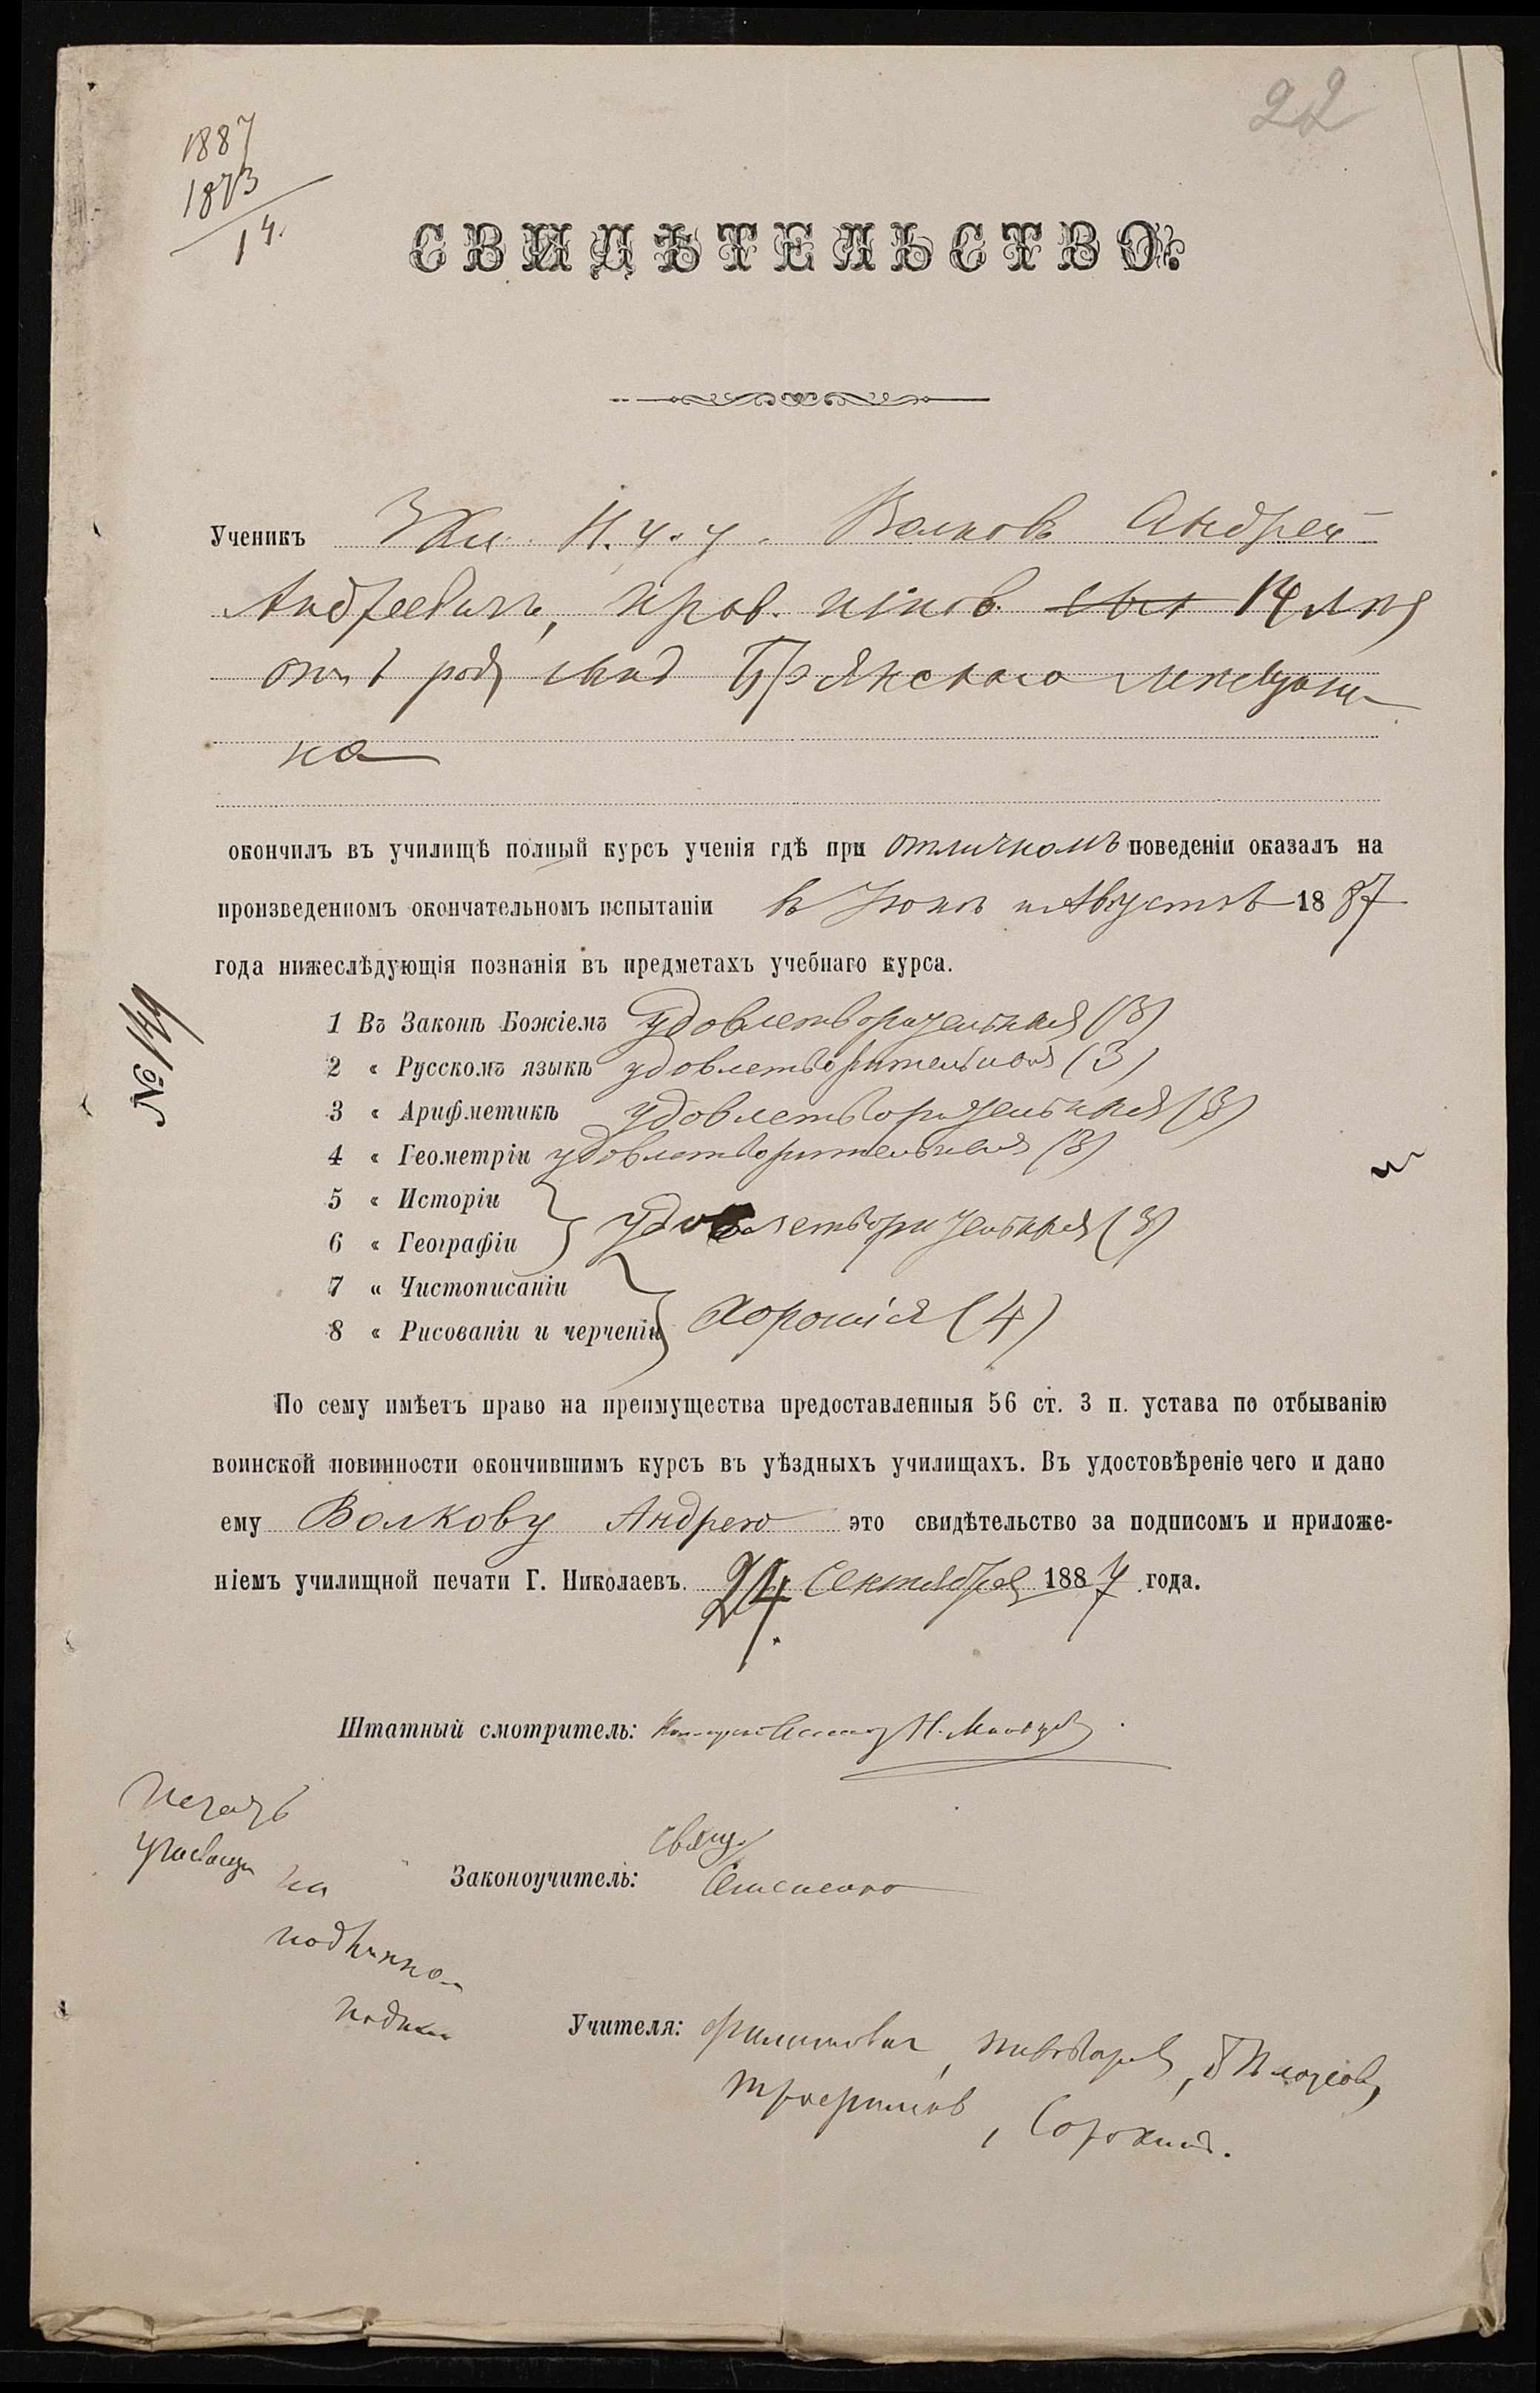 22
1887
1873
14.
СВИДѢТЕЛЬСТВО.
Ученикъ 3 кл. Н. у. у. Волковъ Андрей
Андреевичъ, прав. 14 лѣтъ
отъ роду, сынъ Брянскаго мещани-
на
окончилъ въ училищѣ полный курсъ ученія гдѣ при отличномъ поведеніи оказалъ на
произведенномъ окончательномъ испытаніи въ Іюнѣ и Августѣ 1887
года нижеслѣдующія познанія въ предметахъ учебнаго курса.
№ 149
1 Въ Законѣ Божіемъ удовлетворительныя (3)
2 « Русскомъ языкѣ удовлетворительныя (3)
3 « Арифметикѣ удовлетворительныя (3)
4 « Геометріи удовлетворительныя (3)
5 « Исторіи
6 « Географіи удовлетворительныя (3)
7 « Чистописаніи
8 « Рисованіи и черченіи хорошія (4)
По сему имѣетъ право на преимущества предоставленныя 56 ст. 3 п. устава по отбыванію
воинской повинности окончившимъ курсъ въ уѣздныхъ училищахъ. Въ удостовѣреніе чего и дано
ему Волкову Андрею это свидѣтельство за подписомъ и приложе-
ніемъ училищной печати Г. Николаевъ. 24 Сентября 1887 года.
Штатный смотритель:
Печать
училища
на
Законоучитель: Свящ.
подлинно
Учителя:
Трофимовъ, Сорокинъ.